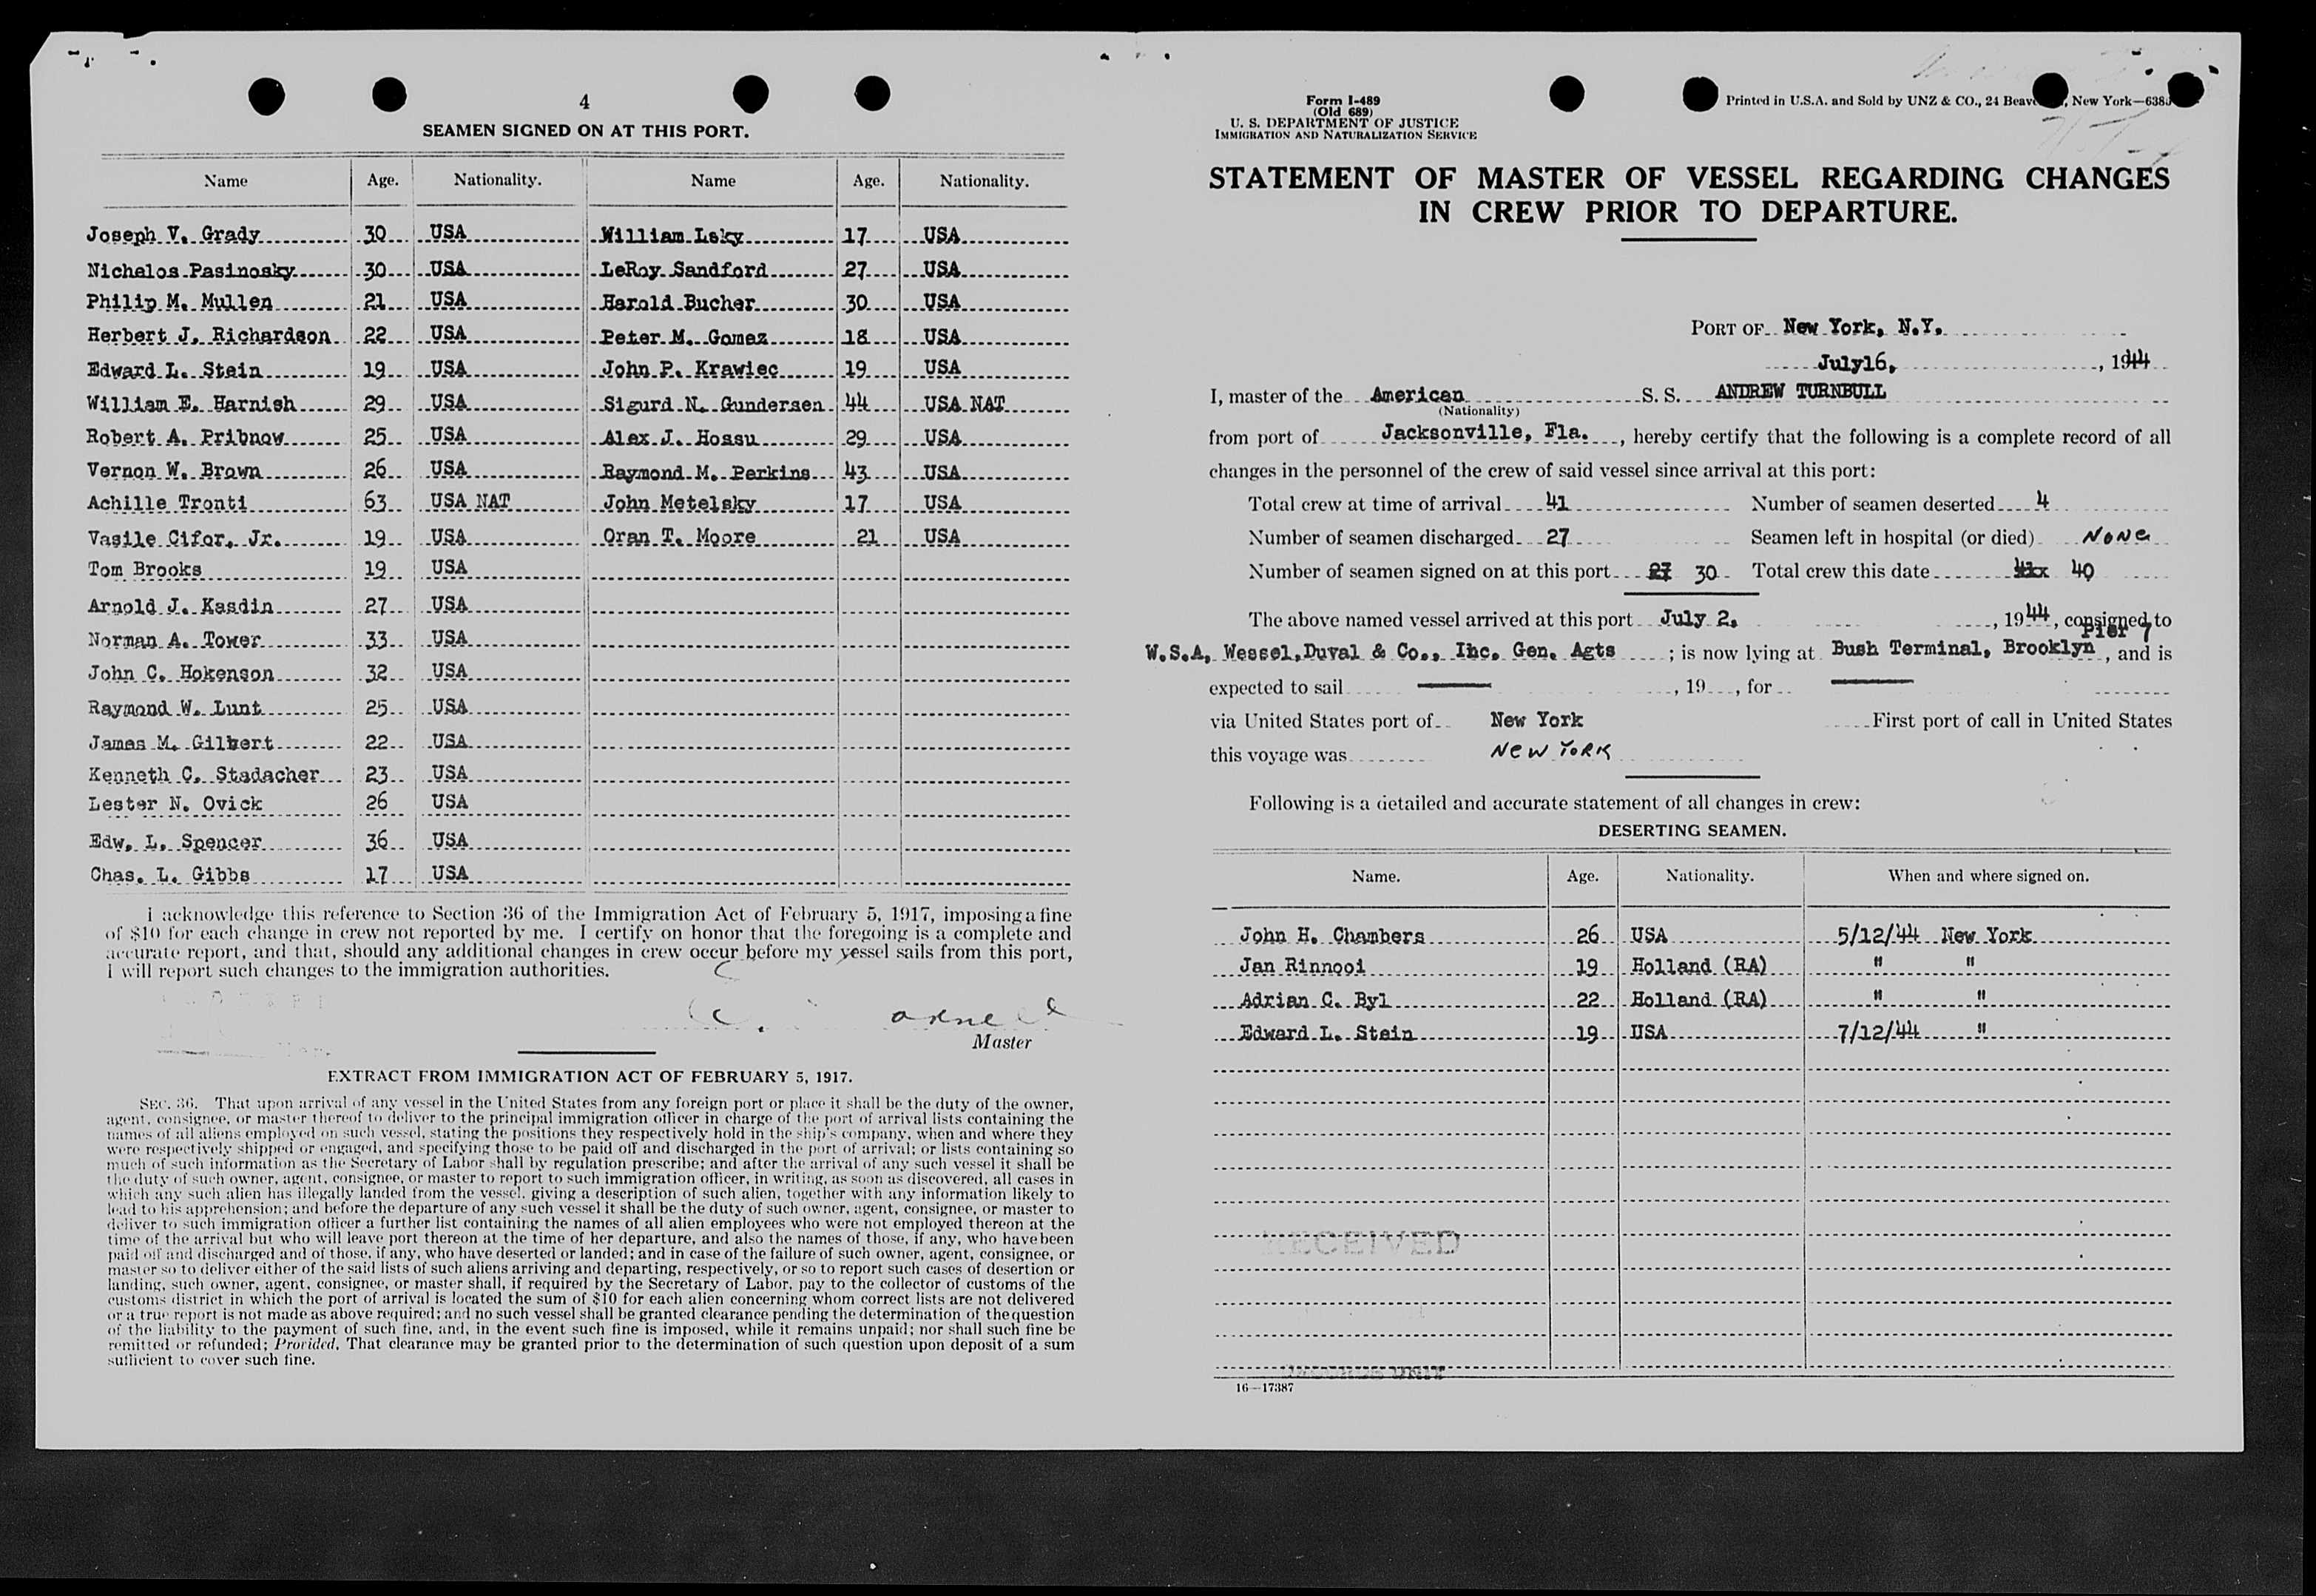 4
SEAMEN SIGNED ON AT THIS PORT.
Name Age. Nationality. Name Age. Nationality.
Joseph V. Grady 30 USA William Lsky 17 USA
Nichalos Pasinosky 30 USA LeRoy Sandford 27 USA
Philip M. Mullen 21 USA Harold Bucher 30 USA
Herbert J. Richardson 22 USA Peter M. Gomez 18 USA
Edward L. Stein 19 USA John P. Krawiec 19 USA
William E. Harnish 29 USA Sigurd N. Gundersen 44 USA NAT
Robert A. Pribnow 25 USA Alex J. Hossu 29 USA
Vernon W. Brown 26 USA Raymond M. Perkins 43 USA
Achille Tronti 63 USA NAT John Metelsky 17 USA
Vasile Cifor, Jr. 19 USA Oran T. Moore 21 USA
Tom Brooks 19 USA
Arnold J. Kasdin 27 USA
Norman A. Tower 33 USA
John C. Hokenson 32 USA
Raymond W. Lunt 25 USA
James M. Gilbert 22 USA
Kenneth C. Stadacher 23 USA
Lester N. Ovick 26 USA
Edw. L. Spencer 36 USA
Chas. L. Gibbs 17 USA
I acknowledge this reference to Section 36 of the Immigration Act of February 5, 1917, imposing a fine
of $10 for each change in crew not reported by me. I certify on honor that the foregoing is a complete and
accurate report, and that, should any additional changes in crew occur before my vessel sails from this port,
I will report such changes to the immigration authorities.
Master
EXTRACT FROM IMMIGRATION ACT OF FEBRUARY 5, 1917.
SEC. 36. That upon arrival of any vessel in the United States from any foreign port or place it shall be the duty of the owner,
agent, consignee, or master thereof to deliver to the principal immigration officer in charge of the port of arrival lists containing the
names of all aliens employed on such vessel, stating the positions they respectively hold in the ship's company, when and where they
were respectively shipped or engaged, and specifying those to be paid off and discharged in the port of arrival; or lists containing so
much of such information as the Secretary of Labor shall by regulation prescribe; and after the arrival of any such vessel it shall be
the duty of such owner, agent, consignee, or master to report to such immigration officer, in writing, as soon as discovered, all cases in
which any such alien has illegally landed from the vessel, giving a description of such alien, together with any information likely to
lead to his apprehension; and before the departure of any such vessel it shall be the duty of such owner, agent, consignee, or master to
deliver to such immigration officer a further list containing the names of all alien employees who were not employed thereon at the
time of the arrival but who will leave port thereon at the time of her departure, and also the names of those, if any, who have been
paid off and discharged and of those, if any, who have deserted or landed; and in case of the failure of such owner, agent, consignee, or
master so to deliver either of the said lists of such aliens arriving and departing, respectively, or so to report such cases of desertion or
landing, such owner, agent, consignee, or master shall, if required by the Secretary of Labor, pay to the collector of customs of the
customs district in which the port of arrival is located the sum of $10 for each alien concerning whom correct lists are not delivered
or a true report is not made as above required; and no such vessel shall be granted clearance pending the determination of the question
of the liability to the payment of such fine, and, in the event such fine is imposed, while it remains unpaid; nor shall such fine be
remitted or refunded; Provided, That clearance may be granted prior to the determination of such question upon deposit of a sum
sufficient to cover such fine.
Form I-489
(Old 689)
U. S. DEPARTMENT OF JUSTICE
IMMIGRATION AND NATURALIZATION SERVICE
Printed in U.S.A. and Sold by UNZ & CO., 24 Beav , New York—638
STATEMENT OF MASTER OF VESSEL REGARDING CHANGES
IN CREW PRIOR TO DEPARTURE.
PORT OF New York, N.Y.
July16, , 1944
I, master of the American S. S. ANDREW TURNBULL
(Nationality)
from port of Jacksonville, Fla. , hereby certify that the following is a complete record of all
changes in the personnel of the crew of said vessel since arrival at this port:
Total crew at time of arrival 41 Number of seamen deserted 4
Number of seamen discharged 27 Seamen left in hospital (or died) None
Number of seamen signed on at this port 27 30 Total crew this date 40
The above named vessel arrived at this port July 2, , 1944, consigned to
Pier 7
W.S.A, Wessel,Duval & Co., Inc. Gen. Agts ; is now lying at Bush Terminal, Brooklyn , and is
expected to sail , 19 , for
via United States port of New York First port of call in United States
this voyage was New York
Following is a detailed and accurate statement of all changes in crew:
DESERTING SEAMEN.
Name. Age. Nationality. When and where signed on.
John H. Chambers 26 USA 5/12/44 New York
Jan Rinnooi 19 Holland (RA) " "
Adrian C. Byl 22 Holland (RA) " "
Edward L. Stein 19 USA 7/12/44 "
RECEIVED
UNIT
16—17387